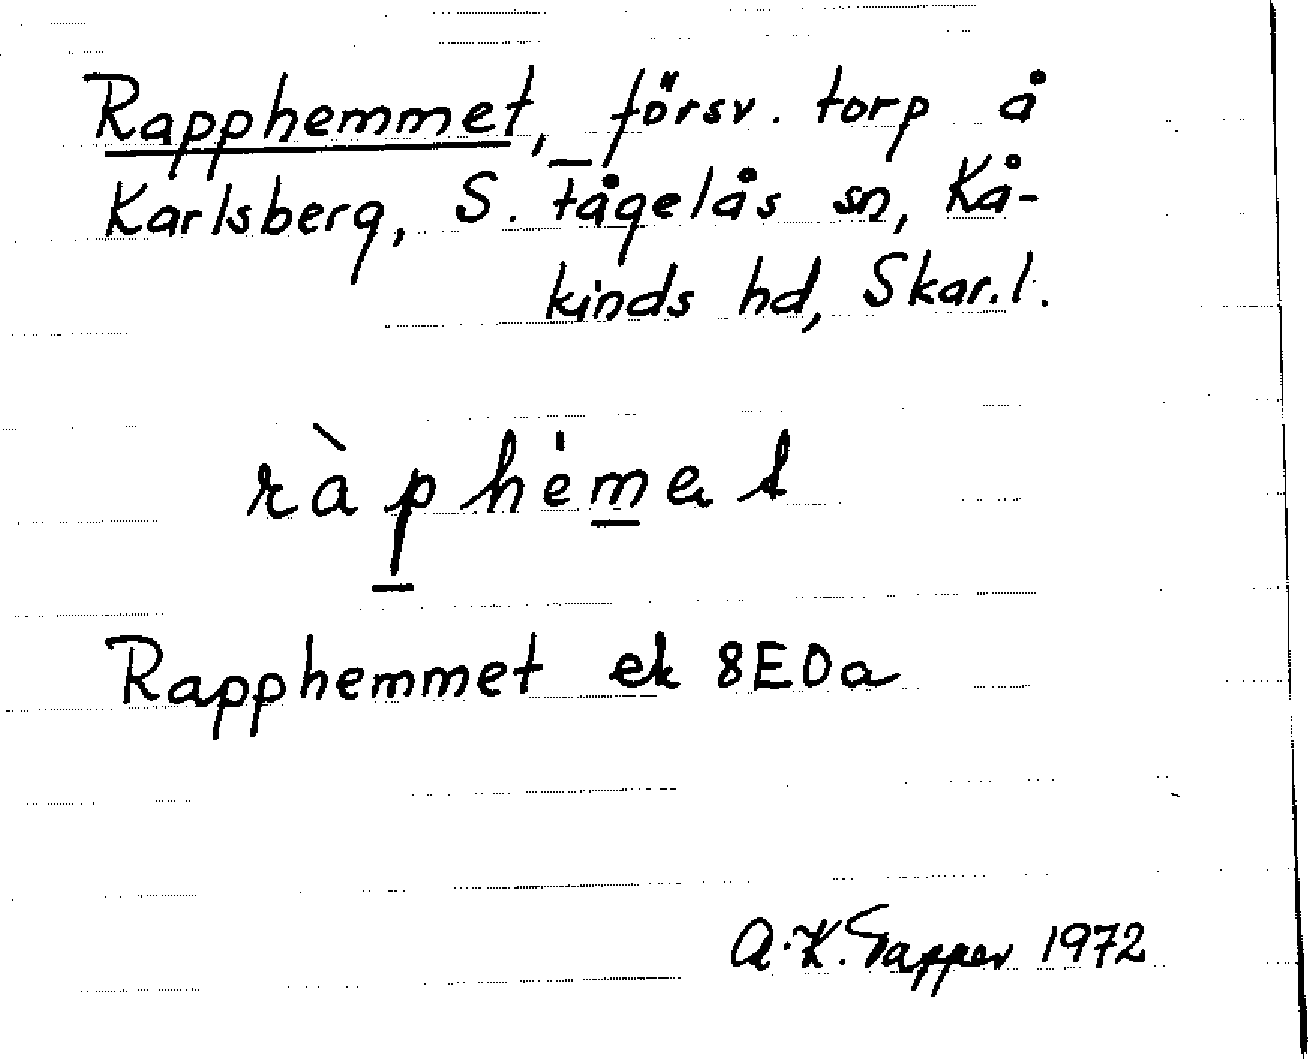 Rapphemmet, försv. torp å
Karlsberg, S. Fågelås sn, Kå-
kinds hd, Skar.l.
ràphèmet
Rapphemmet ek 8E0a
A.K. Tapper 1972